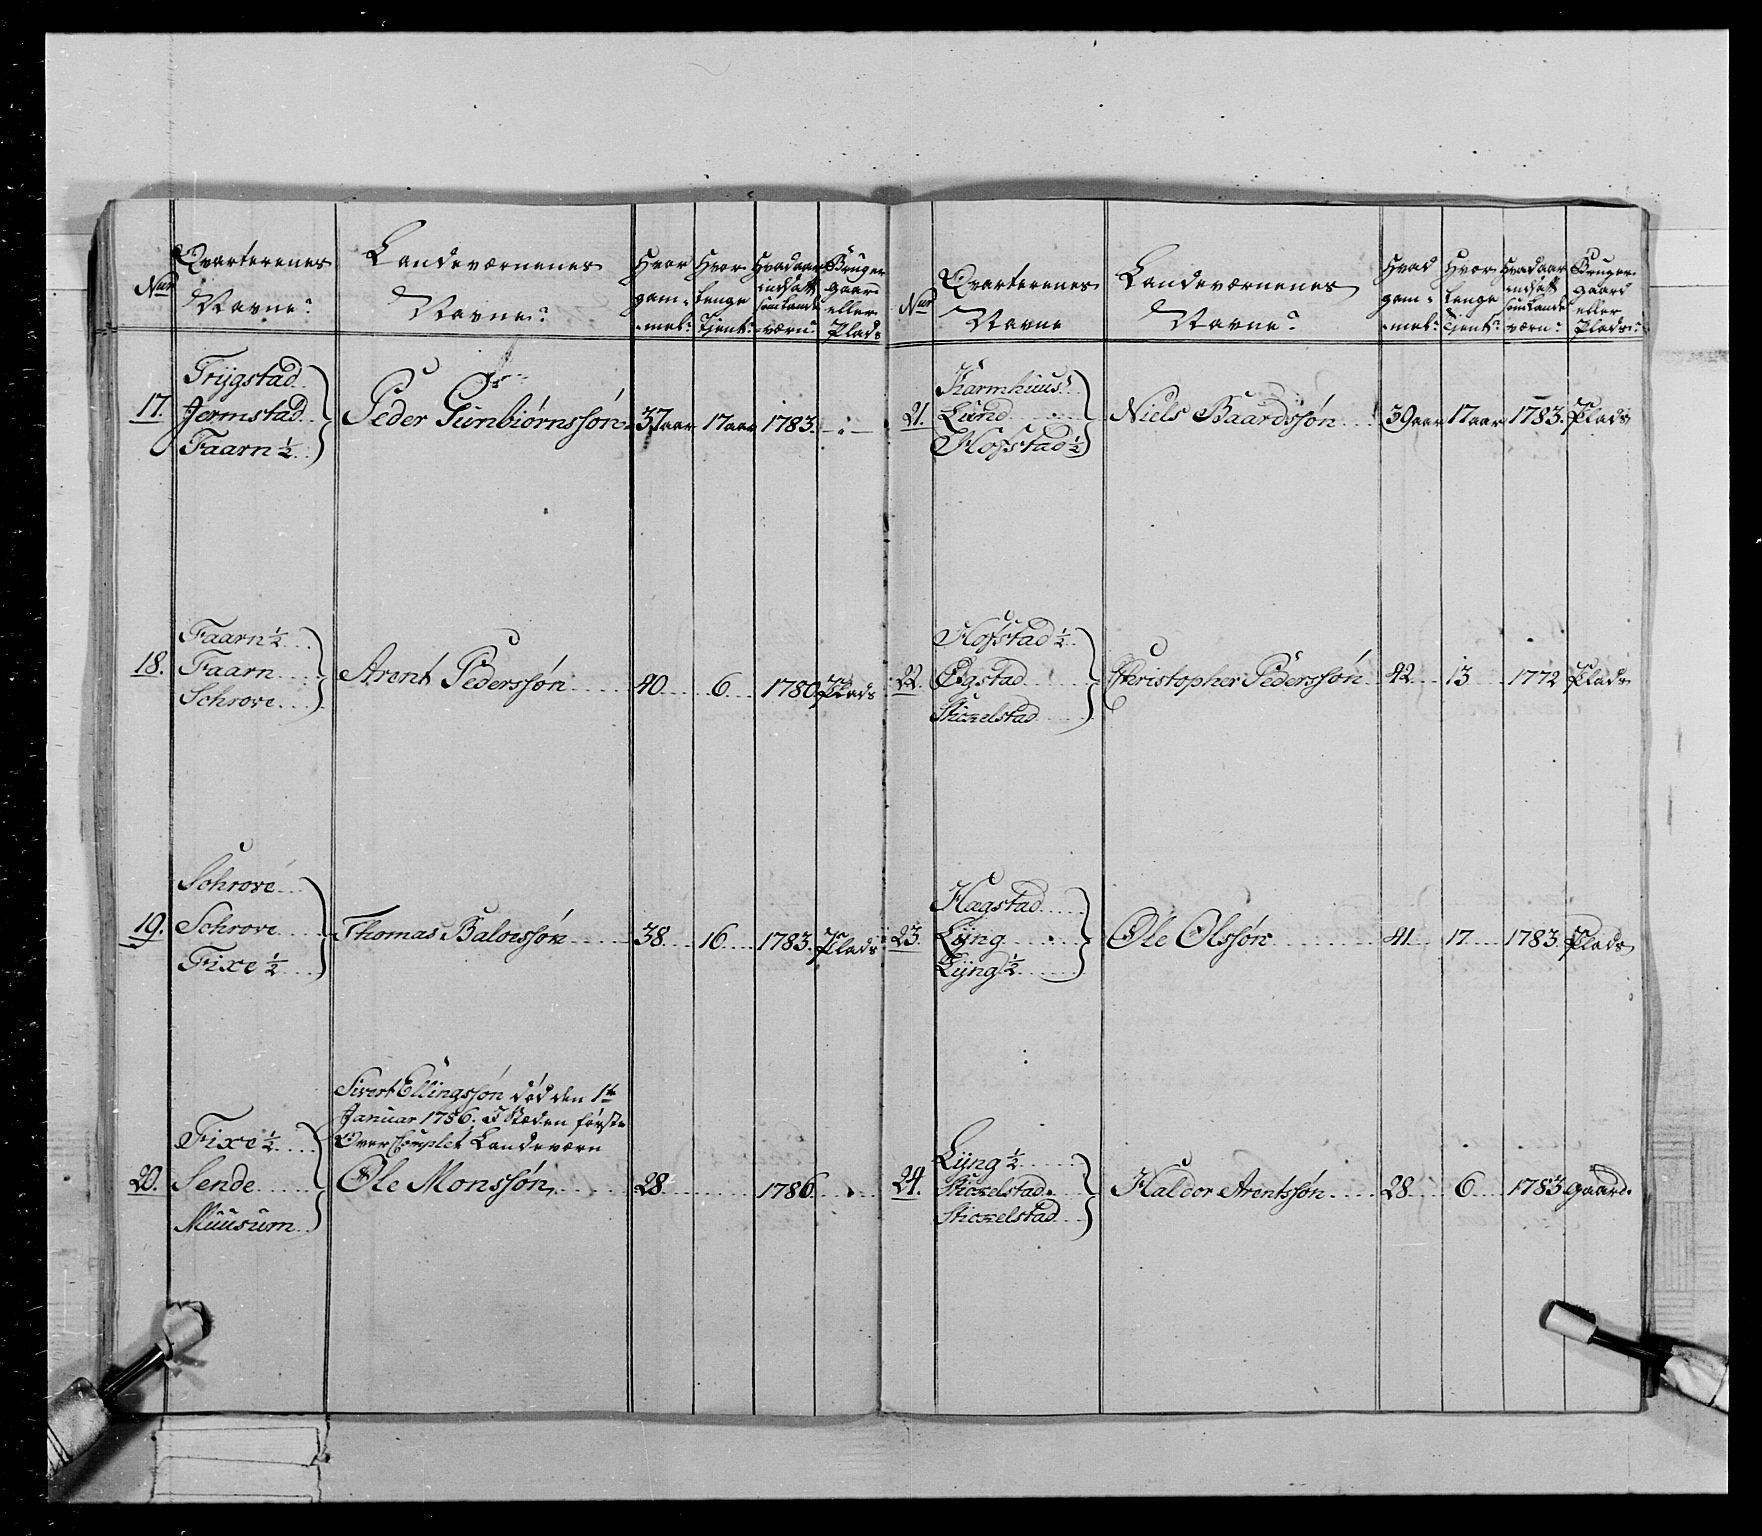 Nur
Qvarterenes
Navne
Landeværnenes
Navne
Hvor
gam-
mel
Hvor
lenge
Tjent
Hvad aar
indsatt
som Lande
værn
Bruger
gaard
eller
Plads
17.
Trÿgstad
Jermstad
Faarn ½
Peder Gunbiørnssøn
37 aar
17 aar
1783.
18.
Faarn ½
Faarn
Schrove
Arent Pederssøn
40
6
1780
Plads
19.
Schrove
Schrove
Fixe ½
Thomas Baloessøn
38
16
1783.
Plads
20.
Fixe ½
Sende
Muusum
Sivert Ellingssøn død den 1te
Januar 1786. I Stæden første
Over Complet Landeværn
Ole Monssøn
28
1786
Nur
Qvarterenes
Navne
Landeværnenes
Navne
Hvad
gam-
mel
Hvor
lenge
Tjent
Hvad aar
indsatt
som Lande
værn
Bruger
gaard
eller
Plads
21.
Karmhuus
Lund
Hofstad ½
Niels Baardssøn
39 aar
17 aar
1783.
Plads
22.
Hofstad ½
Øgstad
Sticxelstad
Christopher Pederssøn
42
13
1772
Plads
23.
Hægstad
Lÿng
Lÿng ½
Ole Olssøn
41
17
1783
Plads
24.
Lÿng ½
Sticxelstad
Sticxelstad
Haldor Arentssøn
28
6
1783
gaard